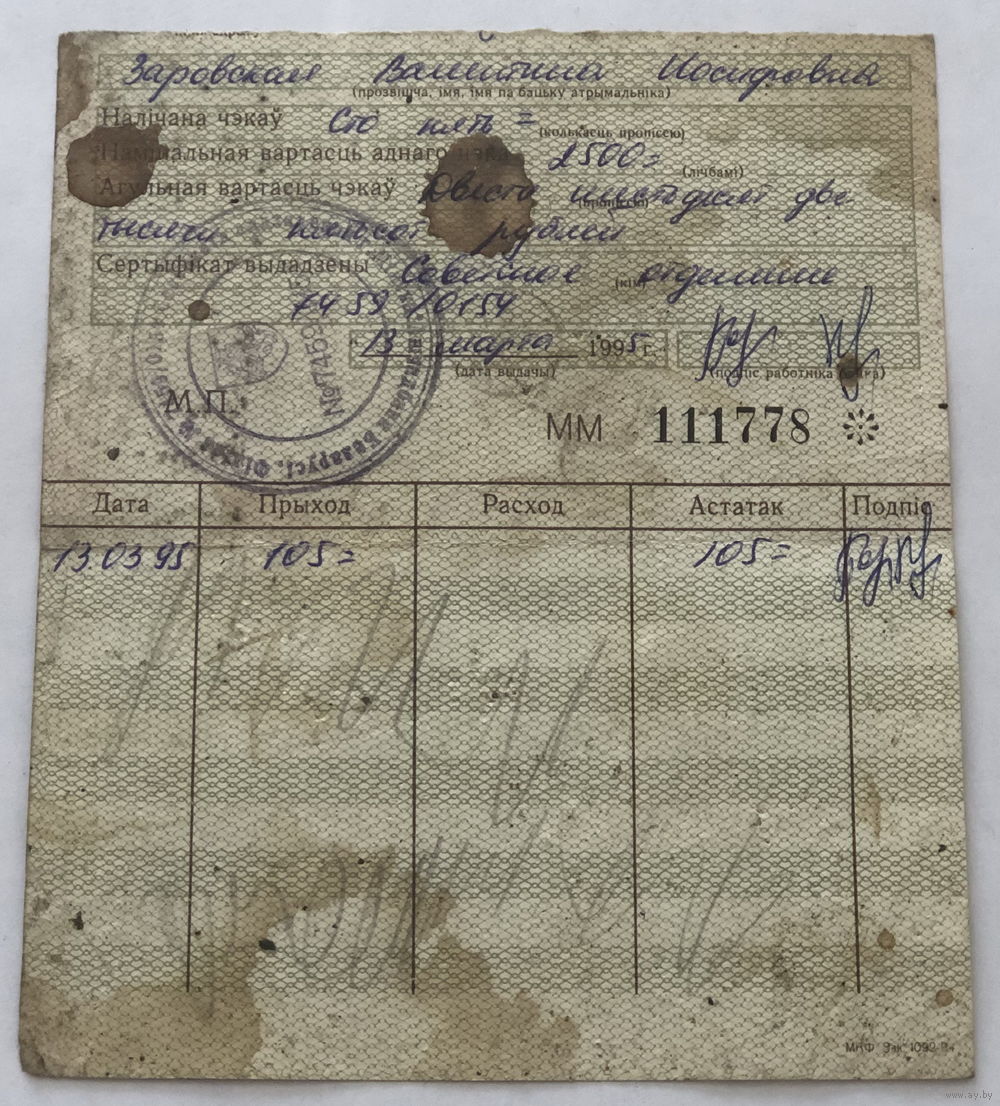 Заровская Валентина Иосифовна
(прозвішча, імя, імя па бацьку атрымальніка)
Налічана чэкаў Сто пять =
(колькасць пропіссю)
Намінальная вартасць аднаго чэка 2500=
(лічбамі)
Агульная вартасць чэкаў Двести шестьдесят две
(пропіссю)
тысячи пятьсот рублей
Сертыфікат выдадзены Советское отделение
(кім)
7459/0154
13 марта 1995 г.
(дата выдачы) (подпіс работніка банка)
М.П.
№7459
ММ 111778
Дата Прыход Расход Астатак Подпіс
13.03.95 105= 105=
МПФ Зак. 1092-
www.ay.by